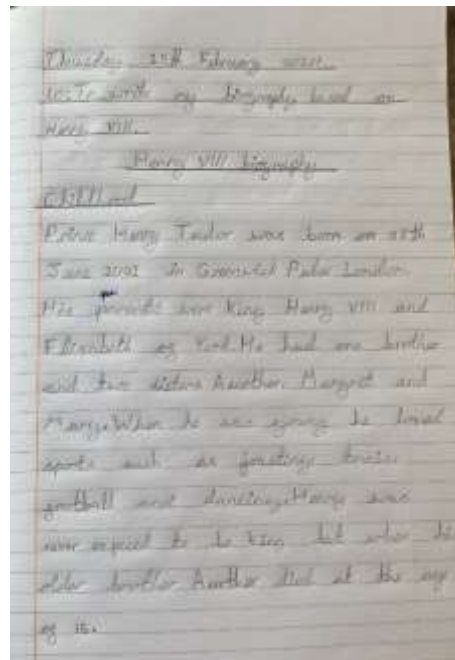 Thursday 25th February
LO: To write my biography based on
Henry VIII.
Henry VIII biography
Childhood
Prince Henry Tudor was born on 28th
June in Greenwich Palace London.
His parents were King Henry VIII and
Elizabeth of York. He had one brother
and two sisters Aurther, Margret and
Mary. When he was young he loved
sports such as jousting, tennis,
football and dancing. Henry was
never expected to be king but when his
older brother Aurther died at the age
of 15.